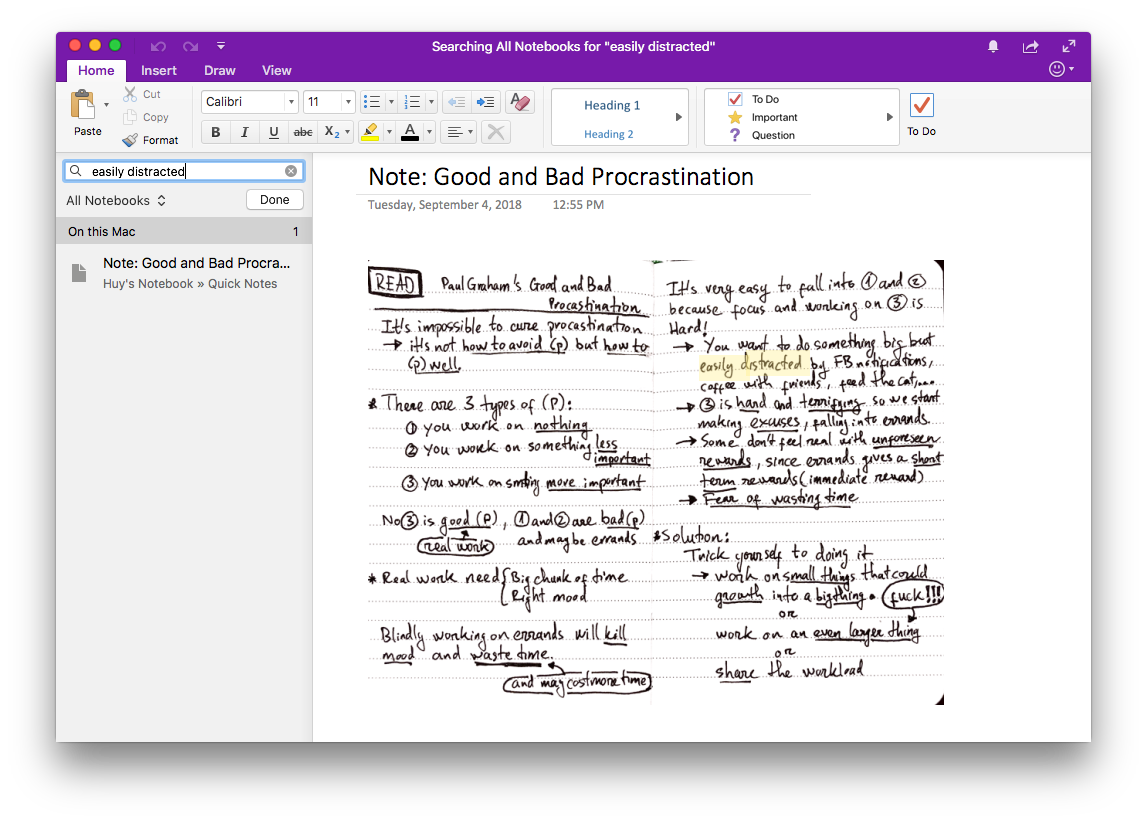 Searching All Notebooks for "easily distracted"
Home
Insert
Draw
View
Paste
Cut
Copy
Format
Calibri
11
B I U abc X2
A
Heading 1
Heading 2
To Do
Important
? Question
To Do
easily distracted
All Notebooks
Done
On this Mac 1
Note: Good and Bad Procra...
Huy's Notebook » Quick Notes
Note: Good and Bad Procrastination
Tuesday, September 4, 2018 12:55 PM
READ Paul Graham's Good and Bad
Procastination
It's impossible to cure procastination
→ it's not how to avoid (p) but how to
(p) well.
* There are 3 types of (P):
① you work on nothing
② you work on something less
important
③ you work on smthing more important
No③ is good (P), ① and ② are bad (p)
real work and maybe errands
* Real work need { Big chunk of time
Right mood
Blindly working on errands will kill
mood and waste time.
and may cost more time
It's very easy to fall into ① and ②
because focus and working on ③ is
Hard!
→ You want to do something big but
easily distracted by FB notifications,
coffee with friends, feed the cat,...
→ ③ is hard and terrifying so we start
making excuses, falling into errands.
→ Some don't feel real with unforeseen
rewards, since errands gives a short
term rewards (immediate reward)
→ Fear of wasting time
* Solution:
Trick yourself to doing it
→ work on small things that could
growth into a big thing. fuck!!!
or
work on an even larger thing
or
share the workload